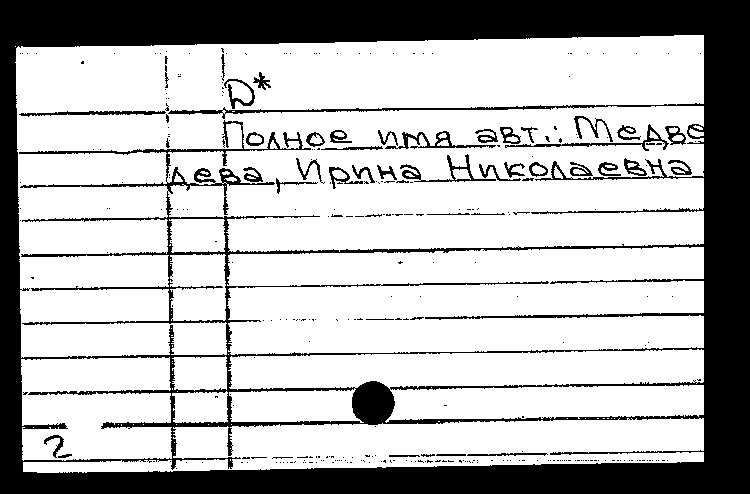 D*
Полное имя авт.: Медве
дева, Ирина Николаевна.
2